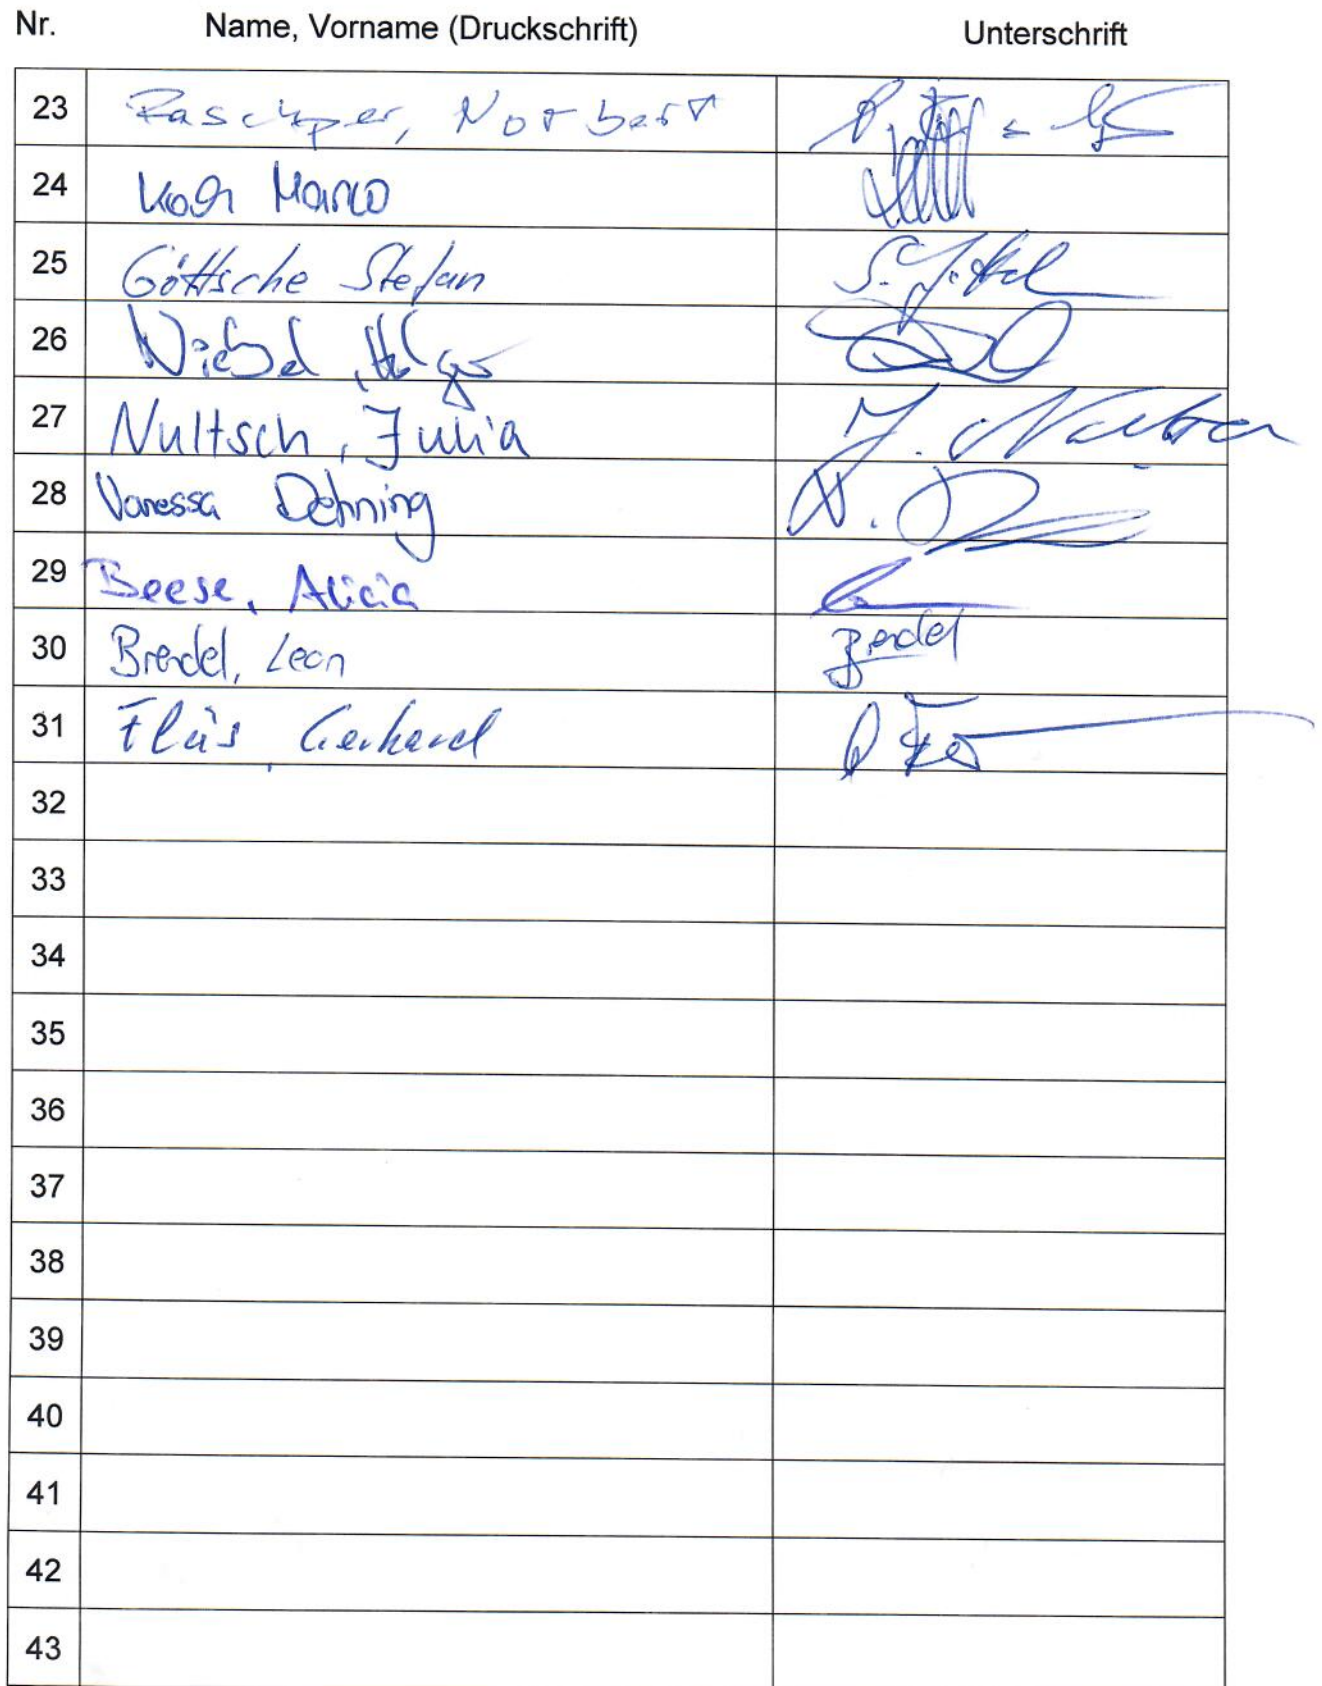 Nr. Name, Vorname (Druckschrift) Unterschrift
23 Raschper, Norbert
24 Koch Marco
25 Göttsche Stefan
26 Niebel, Holger
27 Nultsch, Julia J.
28 Vanessa Dehning V.
29 Beese, Alicia
30 Brendel, Leon Brendel
31 Fläs, Gerhard
32
33
34
35
36
37
38
39
40
41
42
43